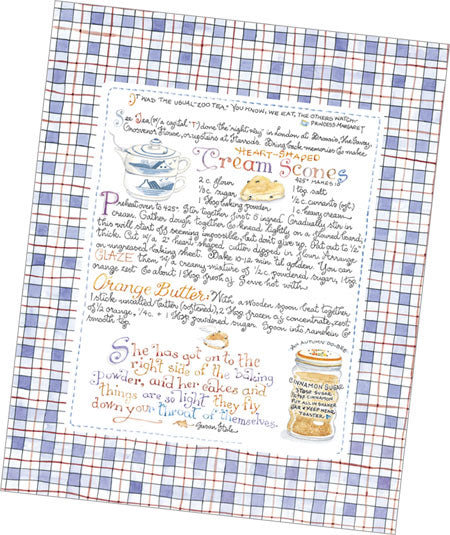 "IT WAS THE USUAL 'ZOO TEA.' YOU KNOW, WE EAT, THE OTHERS WATCH."
PRINCESS MARGARET
See Tea (w/a capital "T") done the "right way" in London at Brown's, the Savoy,
Grosvenor House, or upstairs at Harrods. Bring back memories & make
HEART-SHAPED
Cream Scones
2 c. flour
½ c. sugar
1 Tbsp baking powder
425° MAKES 18
1 tsp salt
½ c. currants (opt.)
1 c. heavy cream
Preheat oven to 425°. Stir together first 5 ingred. Gradually stir in
cream. Gather dough together & knead lightly on a floured board;
this will start off seeming impossible, but don't give up. Pat out to ½"
thick. Cut w/a 2" heart shaped cutter dipped in flour. Arrange
on ungreased baking sheet. Bake 10-12 min. til golden. You can
GLAZE them w/ a creamy mixture of ½ c. powdered sugar, 1 tsp.
orange zest & about 1 Tbsp fresh o.j. Serve hot with:
Orange Butter: With a wooden spoon beat together
1 stick unsalted butter (softened), 2 Tbsp frozen o.j. concentrate, zest
of ½ orange, ¼ c. + 1 Tbsp powdered sugar. Spoon into ramekin &
smooth top.
She has got on to the
right side of the Baking
Powder, and her cakes and
things are so light they fly
down your throat of themselves.
~Susan Hale
AN AUTUMN DO-BEE
CINNAMON SUGAR
CINNAMON
PUT ALL IN SHAKER
JAR & KEEP NEAR
TOASTER